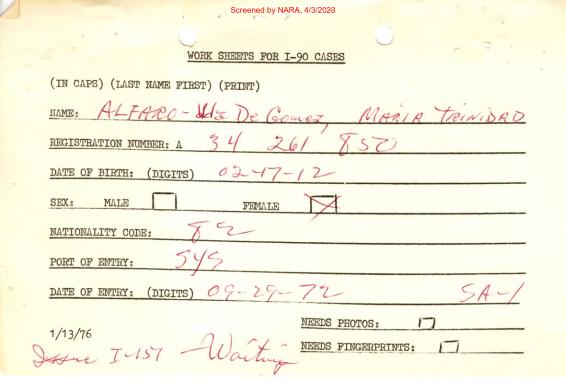 Screened by NARA, 4/3/2023
WORK SHEETS FOR I-90 CASES
(IN CAPS) (LAST NAME FIRST) (PRINT)
NAME: ALFARO-Vda De Gomez, MARIA TRINIDAD
REGISTRATION NUMBER: A 34 261 850
DATE OF BIRTH: (DIGITS) 02-17-12
SEX: MALE FEMALE
NATIONALITY CODE:
PORT OF ENTRY: SYS
DATE OF ENTRY: (DIGITS) 09-29-72 SA-1
NEEDS PHOTOS:
1/13/76
NEEDS FINGERPRINTS:
Issue I-151 - Waiting